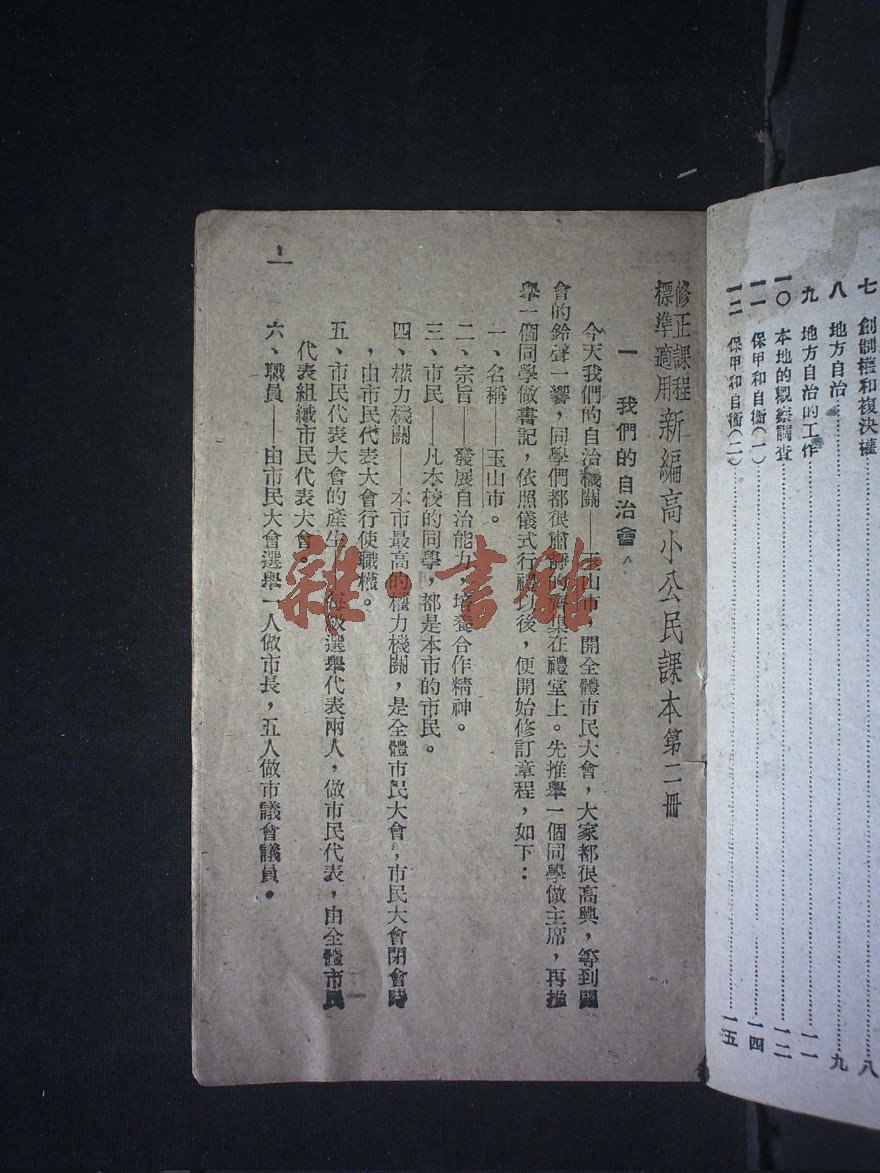 七 創制權和複決權……八
八 地方自治……九
九 地方自治的工作……一一
一〇 本地的觀察調查……一二
一一 保甲和自衞(一)……一四
一二 保甲和自衞(二)……一五
修正課程
標準適用
新編高小公民課本第二冊
一 我們的自治會
今天我們的自治機關——玉山市,開全體市民大會,大家都很高興,等到開
會的鈴聲一響,同學們都很肅靜的齊集在禮堂上。先推舉一個同學做主席,再推
舉一個同學做書記,依照儀式行禮以後,便開始修訂章程,如下:
一、名稱——玉山市。
二、宗旨——發展自治能力,培養合作精神。
三、市民——凡本校的同學,都是本市的市民。
四、權力機關——本市最高的權力機關,是全體市民大會,市民大會閉會時
,由市民代表大會行使職權。
五、市民代表大會的產生——每級選舉代表兩人,做市民代表,由全體市民
代表組織市民代表大會。
六、職員——由市民大會選舉一人做市長,五人做市議會議員。
一
雜·書館